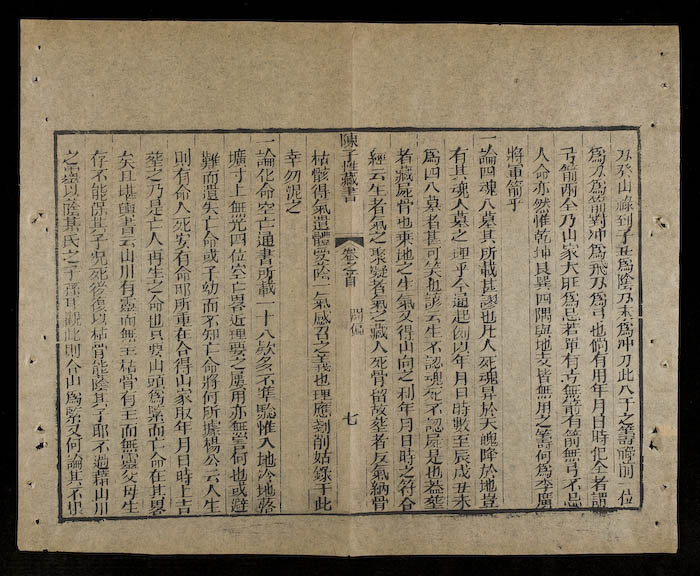 刃癸山祿到子丑為陰刃未為冲刀此八干之等祿前一位
為刀為箭對冲為飛刀為弓也倘有用年月日時犯全者謂
弓箭兩全乃山家大旺為忌若單有弓無箭有箭無弓不忌
人命亦然惟乾坤艮巽四隅與地支皆無用之等何為李廣
將軍箭乎
一論四魂八墓其所載甚謬也凡人死魂昇於天魄降於地豈
有其魂入墓之理乎今通起例以年月日時數至辰戌丑未
為四八墓者甚可笑也諺云生不認魂死不認屍是也蓋葬
者藏屍骨也乘地之生氣又得山向之利年月日時之符合
經云生者氣之聚凝者氣之藏人死骨留故葬者反氣納骨
枯骸得氣遺體受陰一氣感召之義也理應剗削姑錄于此
幸勿泥之
陳子性藏書
卷之首
七
一論化命空亡通書所載一十八欵多不準驗惟入地冷地落
壙寸土無光四位空亡畧近理要之屢用亦無害何也或避
難而遺失亡命或子幼而不知亡命將何所據楊公云人生
則有命人死安有命耶所重在合得山家取年月日時上吉
葬之乃是亡人再生之命也只要山頭為緊而亡命在其畧
矣且堪輿書云山川有靈而無主枯骨有主而無靈父母生
存不能保其子况死後復以枯骨能蔭其子耶不過藉山川
之靈以蔭其氏之子孫耳觀此則合山為緊又何論其不鬼